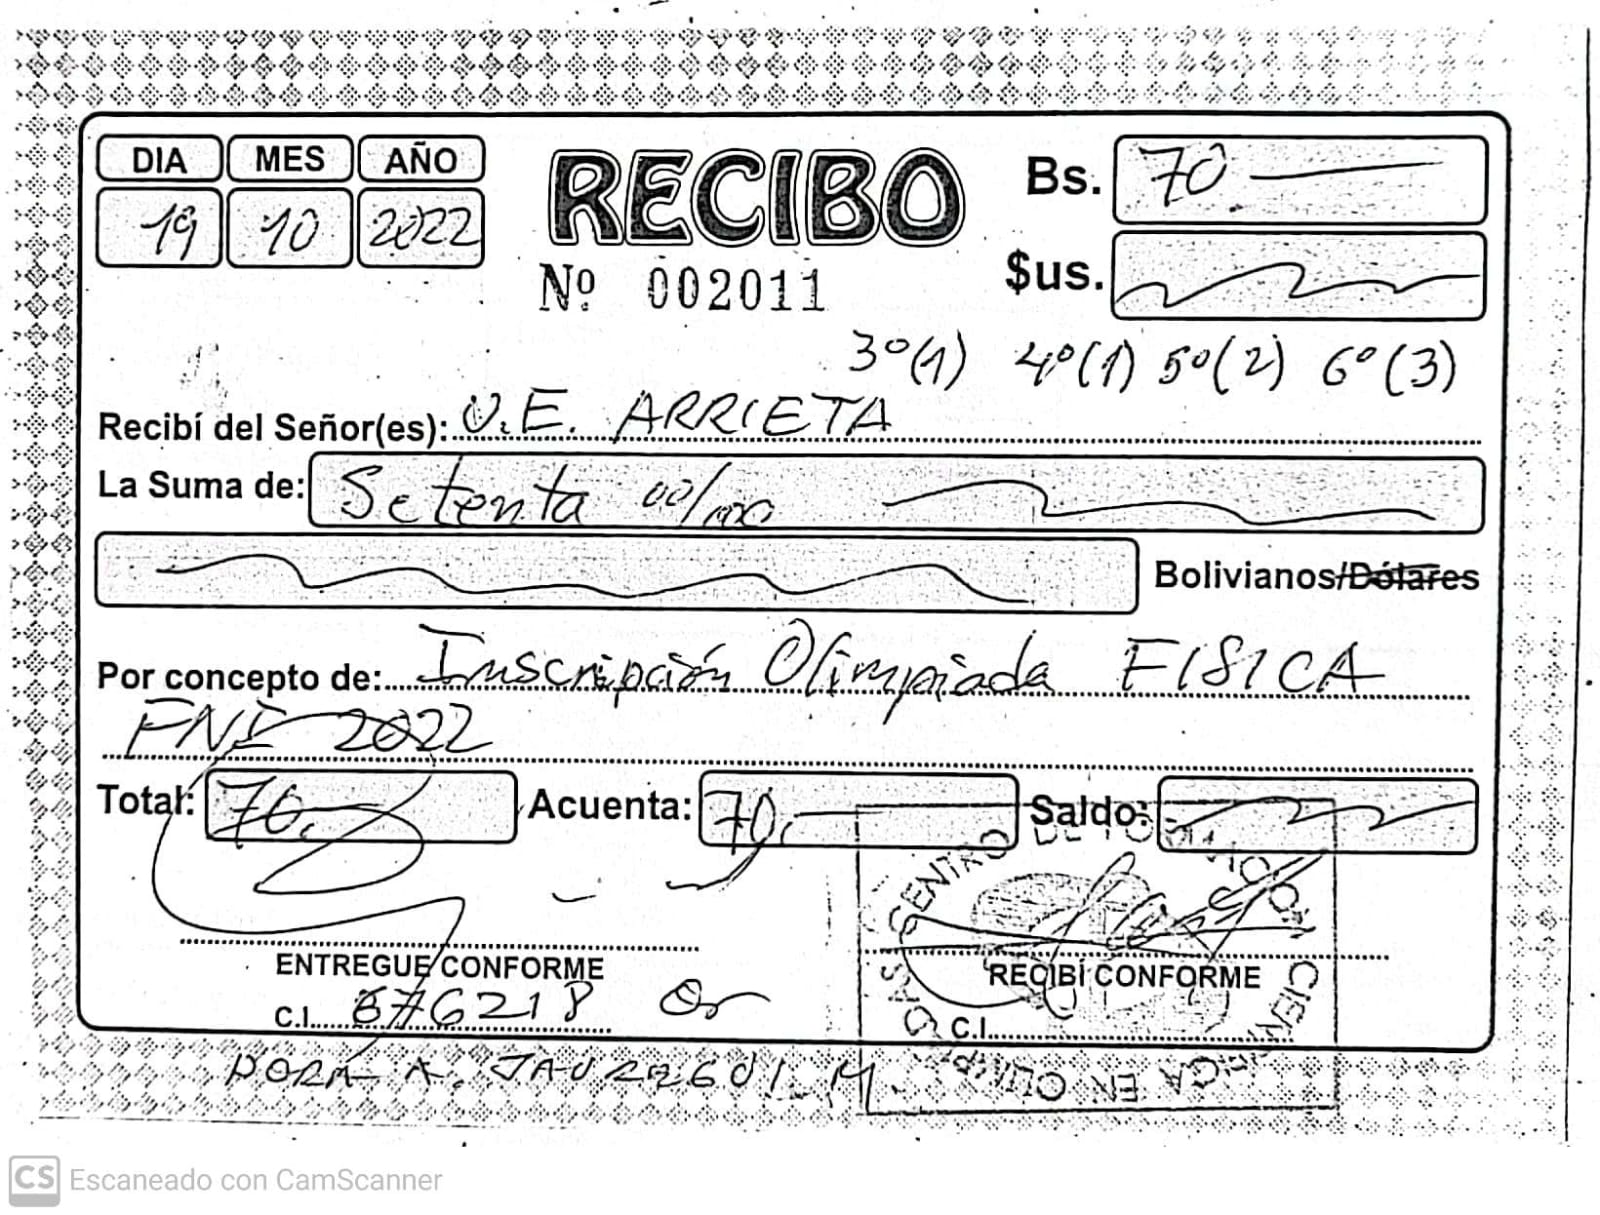 DIA MES AÑO
19 10 2022
RECIBO
Nº 002011
Bs. 70
$us.
3º(1) 4º(1) 5º(2) 6º(3)
Recibí del Señor(es): U.E. ARRIETA
La Suma de: Setenta 00/100
Bolivianos/Dólares
Por concepto de: Inscripción Olimpiada FISICA
FNI 2022
Total: 70. Acuenta: 70. Saldo:
ENTREGUE CONFORME
C.I. 676218 Or
DORA A. JAUREGUI M.
RECIBÍ CONFORME
C.I.
CENTRO DE FORMACION CIENTIFICA EN OLIMPIADAS
CS Escaneado con CamScanner